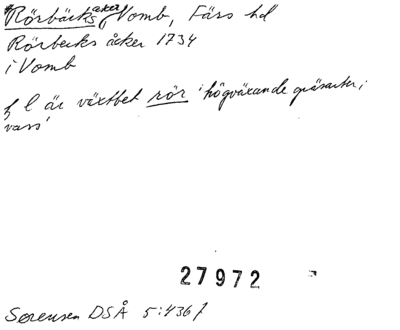 *Rörbäcksåker, Vomb, Färs hd
Rörbecks åcker 1734
i Vomb
f l är växtbet rör 'högväxande gräsarter;
vass'
27972
Sørensen DSÅ 5:436 f